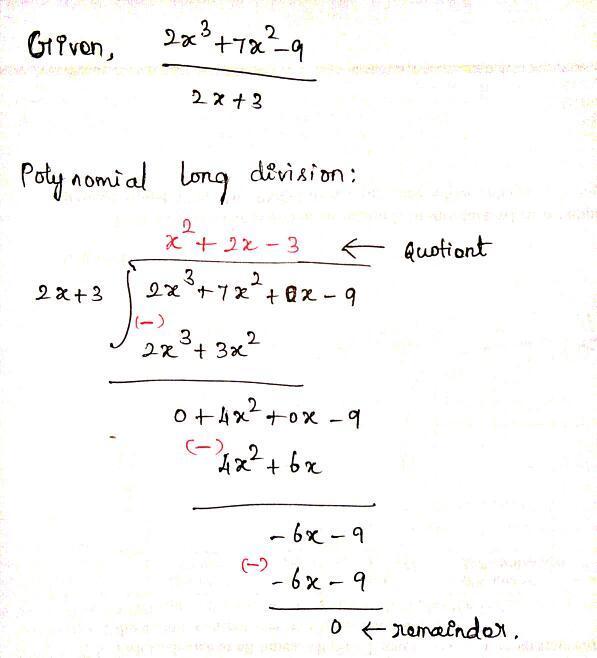 Given, 2x³+7x²-9
2x+3
Polynomial long division:
x²+2x-3 ← Quotient
2x+3 2x³+7x²+0x-9
(-)
2x³+3x²
0+4x²+0x-9
(-) 4x²+6x
-6x-9
(-) -6x-9
0 ← remainder.